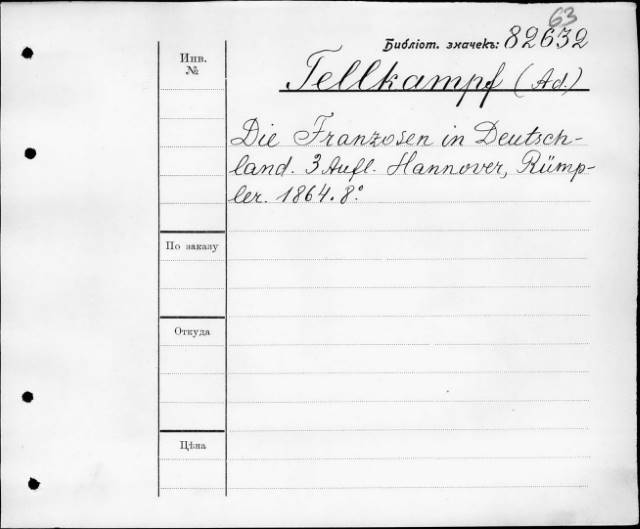 63
Библіот. значекъ: 82632
Инв.
№
Tellkampf (Ad.)
Die Franzosen in Deutsch-
land. 3 Aufl. Hannover, Rümp-
ler. 1864. 8.°
По заказу
Откуда
Цѣна